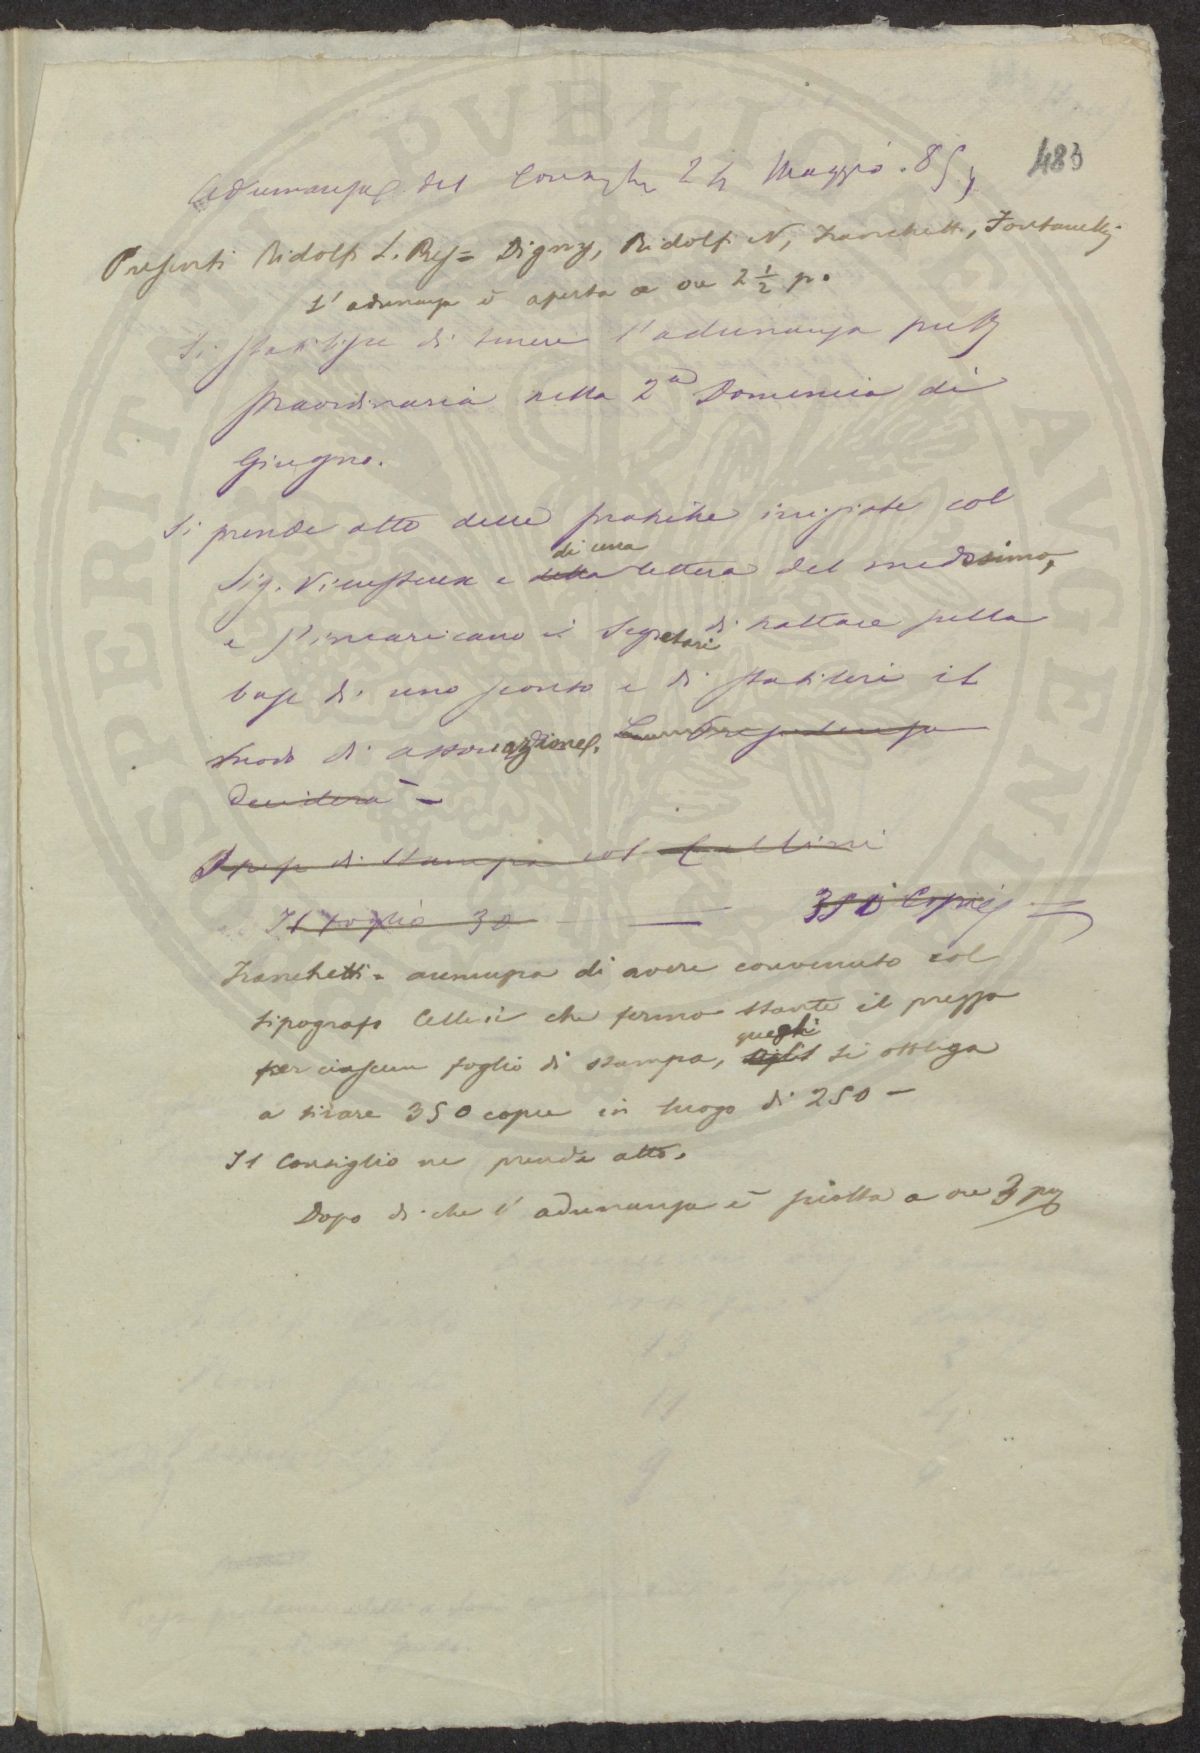 483
Adunanza del Consiglio 24 Maggio . 85
Presenti Ridolfi L. Pres= Digny, Ridolfi N, Franchetti, Fontanelli
L' adunanza è aperta a ore 2 1/2 p.
Si stabilisce di tenere l'adunanza
straordinaria nella 2ª Domenica di
Giugno.
Si prende atto delle pratiche iniziate col
di una
Sig. Vieusseux e della lettera del medesimo,
e s'incaricano i Segretari di trattare sulla
base di uno sconto e di stabilire il
modo di associazione. La Presidenza
deciderà –
Spese di Stampa col Cellini
Il foglio 30 — — 350 Copie
Franchetti = annunzia di avere convenuto col
tipografo Cellini che fermo stante il prezzo
quegli
per ciascun foglio di stampa, si obbliga
a tirare 350 copie in luogo di 250 –
Il Consiglio ne prende atto.
Dopo di che l' adunanza è sciolta a ore 3 pm
PVBLICAE
PROSPERITATI
AVGENDAE